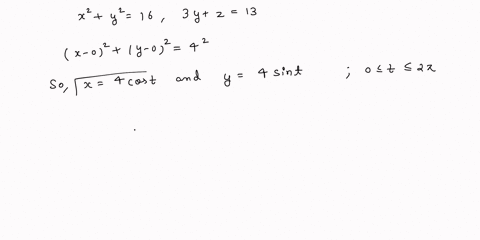 x² + y² = 16 , 3y + z = 13
(x-0)² + (y-0)² = 4²
So, x = 4 cost and y = 4 sint ; 0 ≤ t ≤ 2x